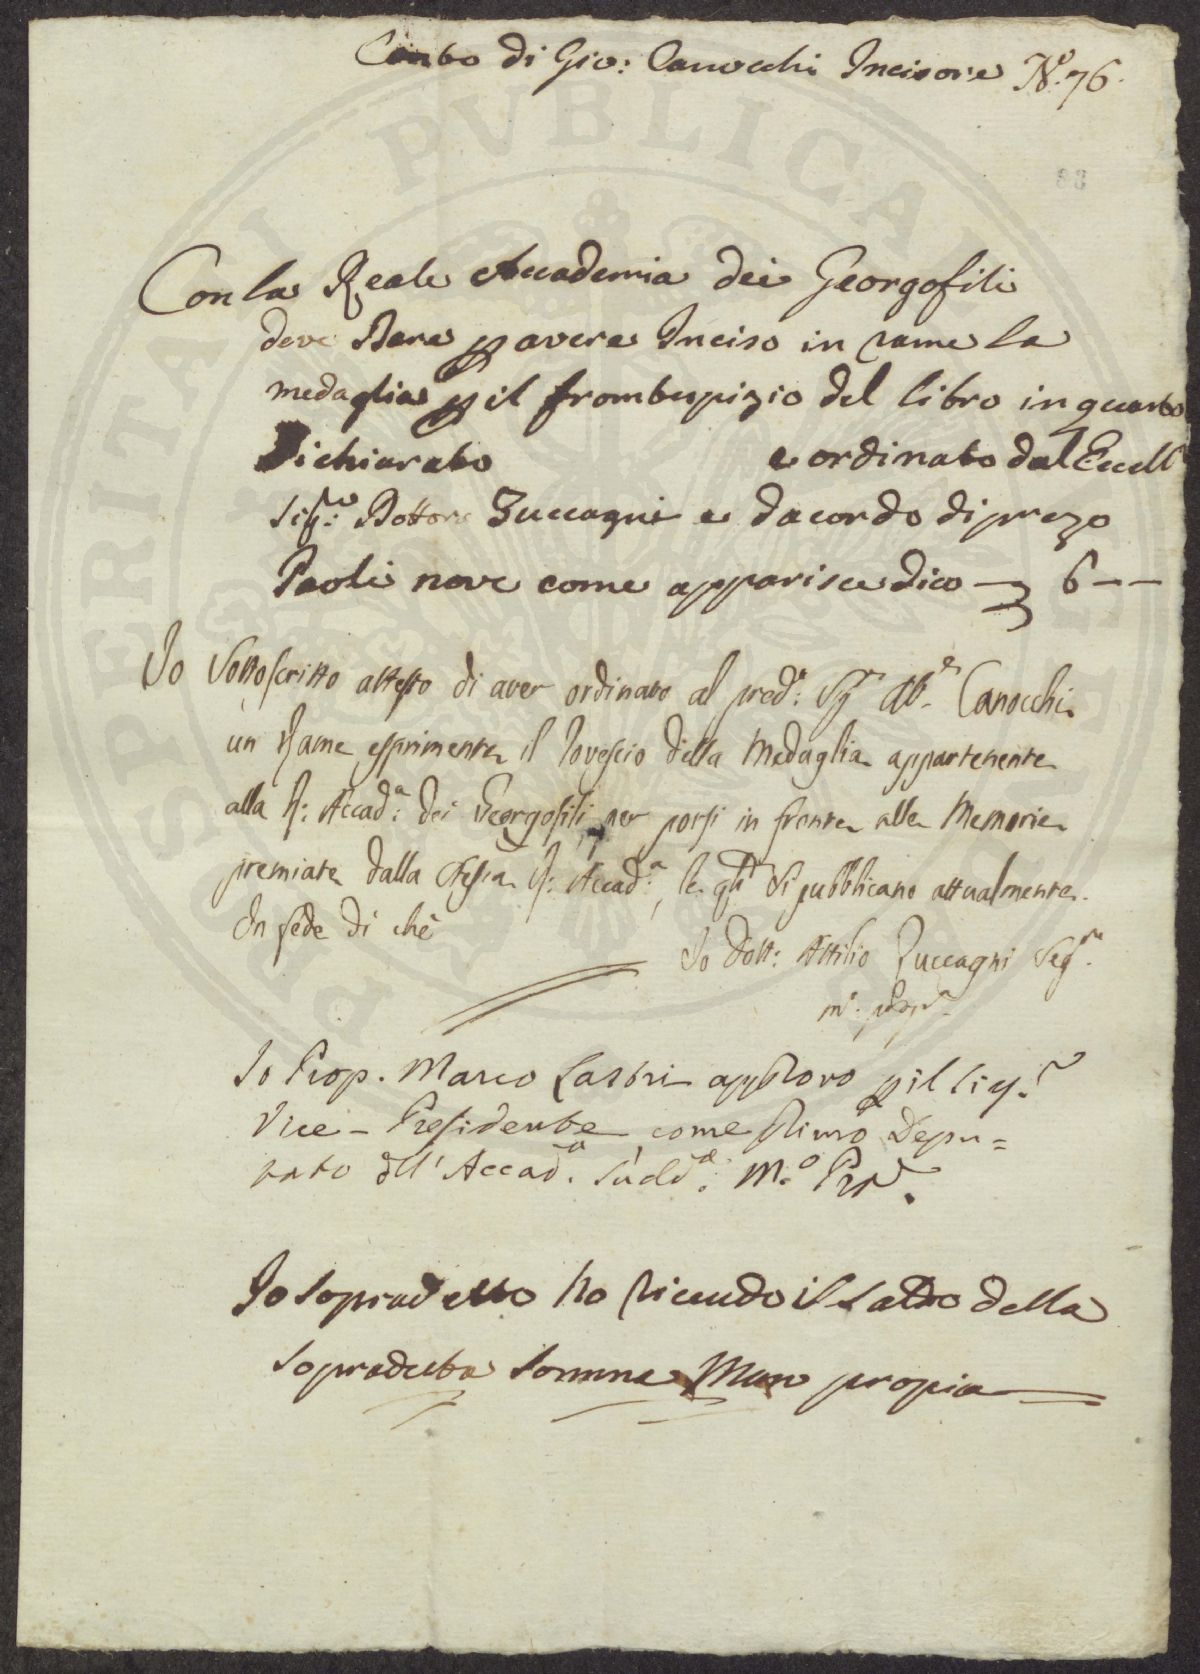 Conto di Gio: Canocchi Incisore N.º 76.
83
Con la Reale Accademia dei Georgofili
deve Dare p avere Inciso in rame la
medaglia p il frontespizio del libro in quarto
Dichiarato e ordinato dal Eccell
Sigre: Dottore Zuccagni e dacordo di prezo
Paoli nove come apparisce dico — 6 — —
Io Sottoscritto attesto di aver ordinato al pred.º: Sigr Ab.e Canocchi
un Rame esprimente il Rovescio della Medaglia appartenente
alla R: Accad.a: dei Georgofili per porsi in fronte alle Memorie
premiate dalla stessa R: Accad.a:, le qli si pubblicano attualmente.
In fede di che
Io Dott: Attilio Zuccagni Segr.
mº. pp.a
Io Prop. Marco Lastri approvo p il Sig.r
Vice-Presidente come Primo Depu=
tato dell'Accad.a Sudd.a: M.º Pp.a
Io sopradetto ho riceuto il saldo della
sopradetta somma Man propia
SPERITATI PVBLICAE